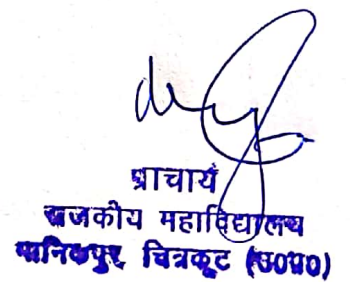 प्राचार्य
राजकीय महाविद्यालय
मानिकपुर, चित्रकूट (उ०प्र०)